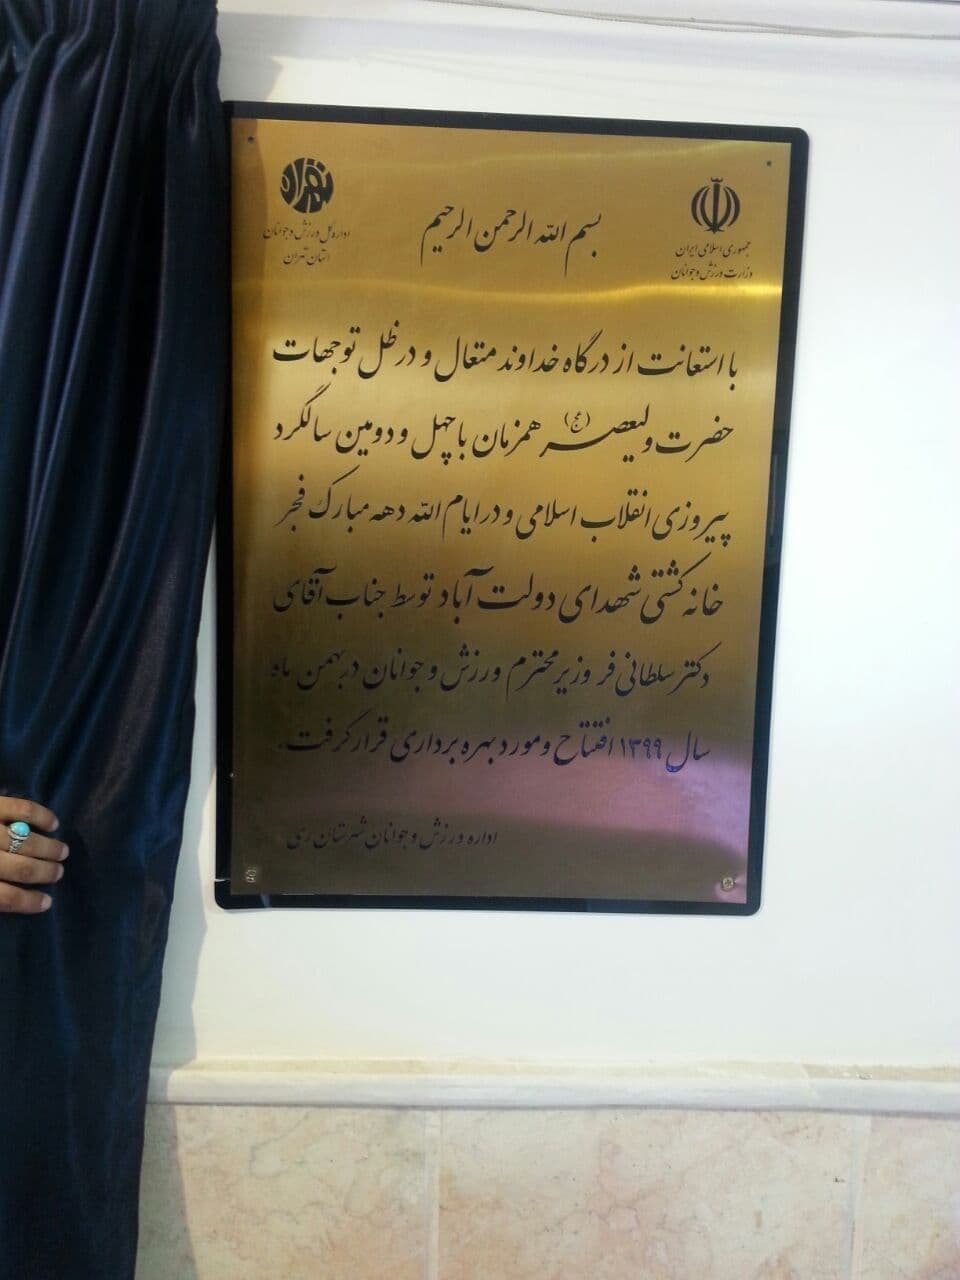 بسم الله الرحمن الرحیم
جمهوری اسلامی ایران
وزارت ورزش و جوانان
تهران
اداره کل ورزش و جوانان
استان تهران
با استعانت از درگاه خداوند متعال و در ظل توجهات
حضرت ولیعصر (عج) همزمان با چهل و دومین سالگرد
پیروزی انقلاب اسلامی و در ایام الله دهه مبارک فجر
خانه کشتی شهدای دولت آباد توسط جناب آقای
دکتر سلطانی فر وزیر محترم ورزش و جوانان در بهمن ماه
سال ۱۳۹۹ افتتاح و مورد بهره برداری قرار گرفت.
اداره ورزش و جوانان شهرستان ری